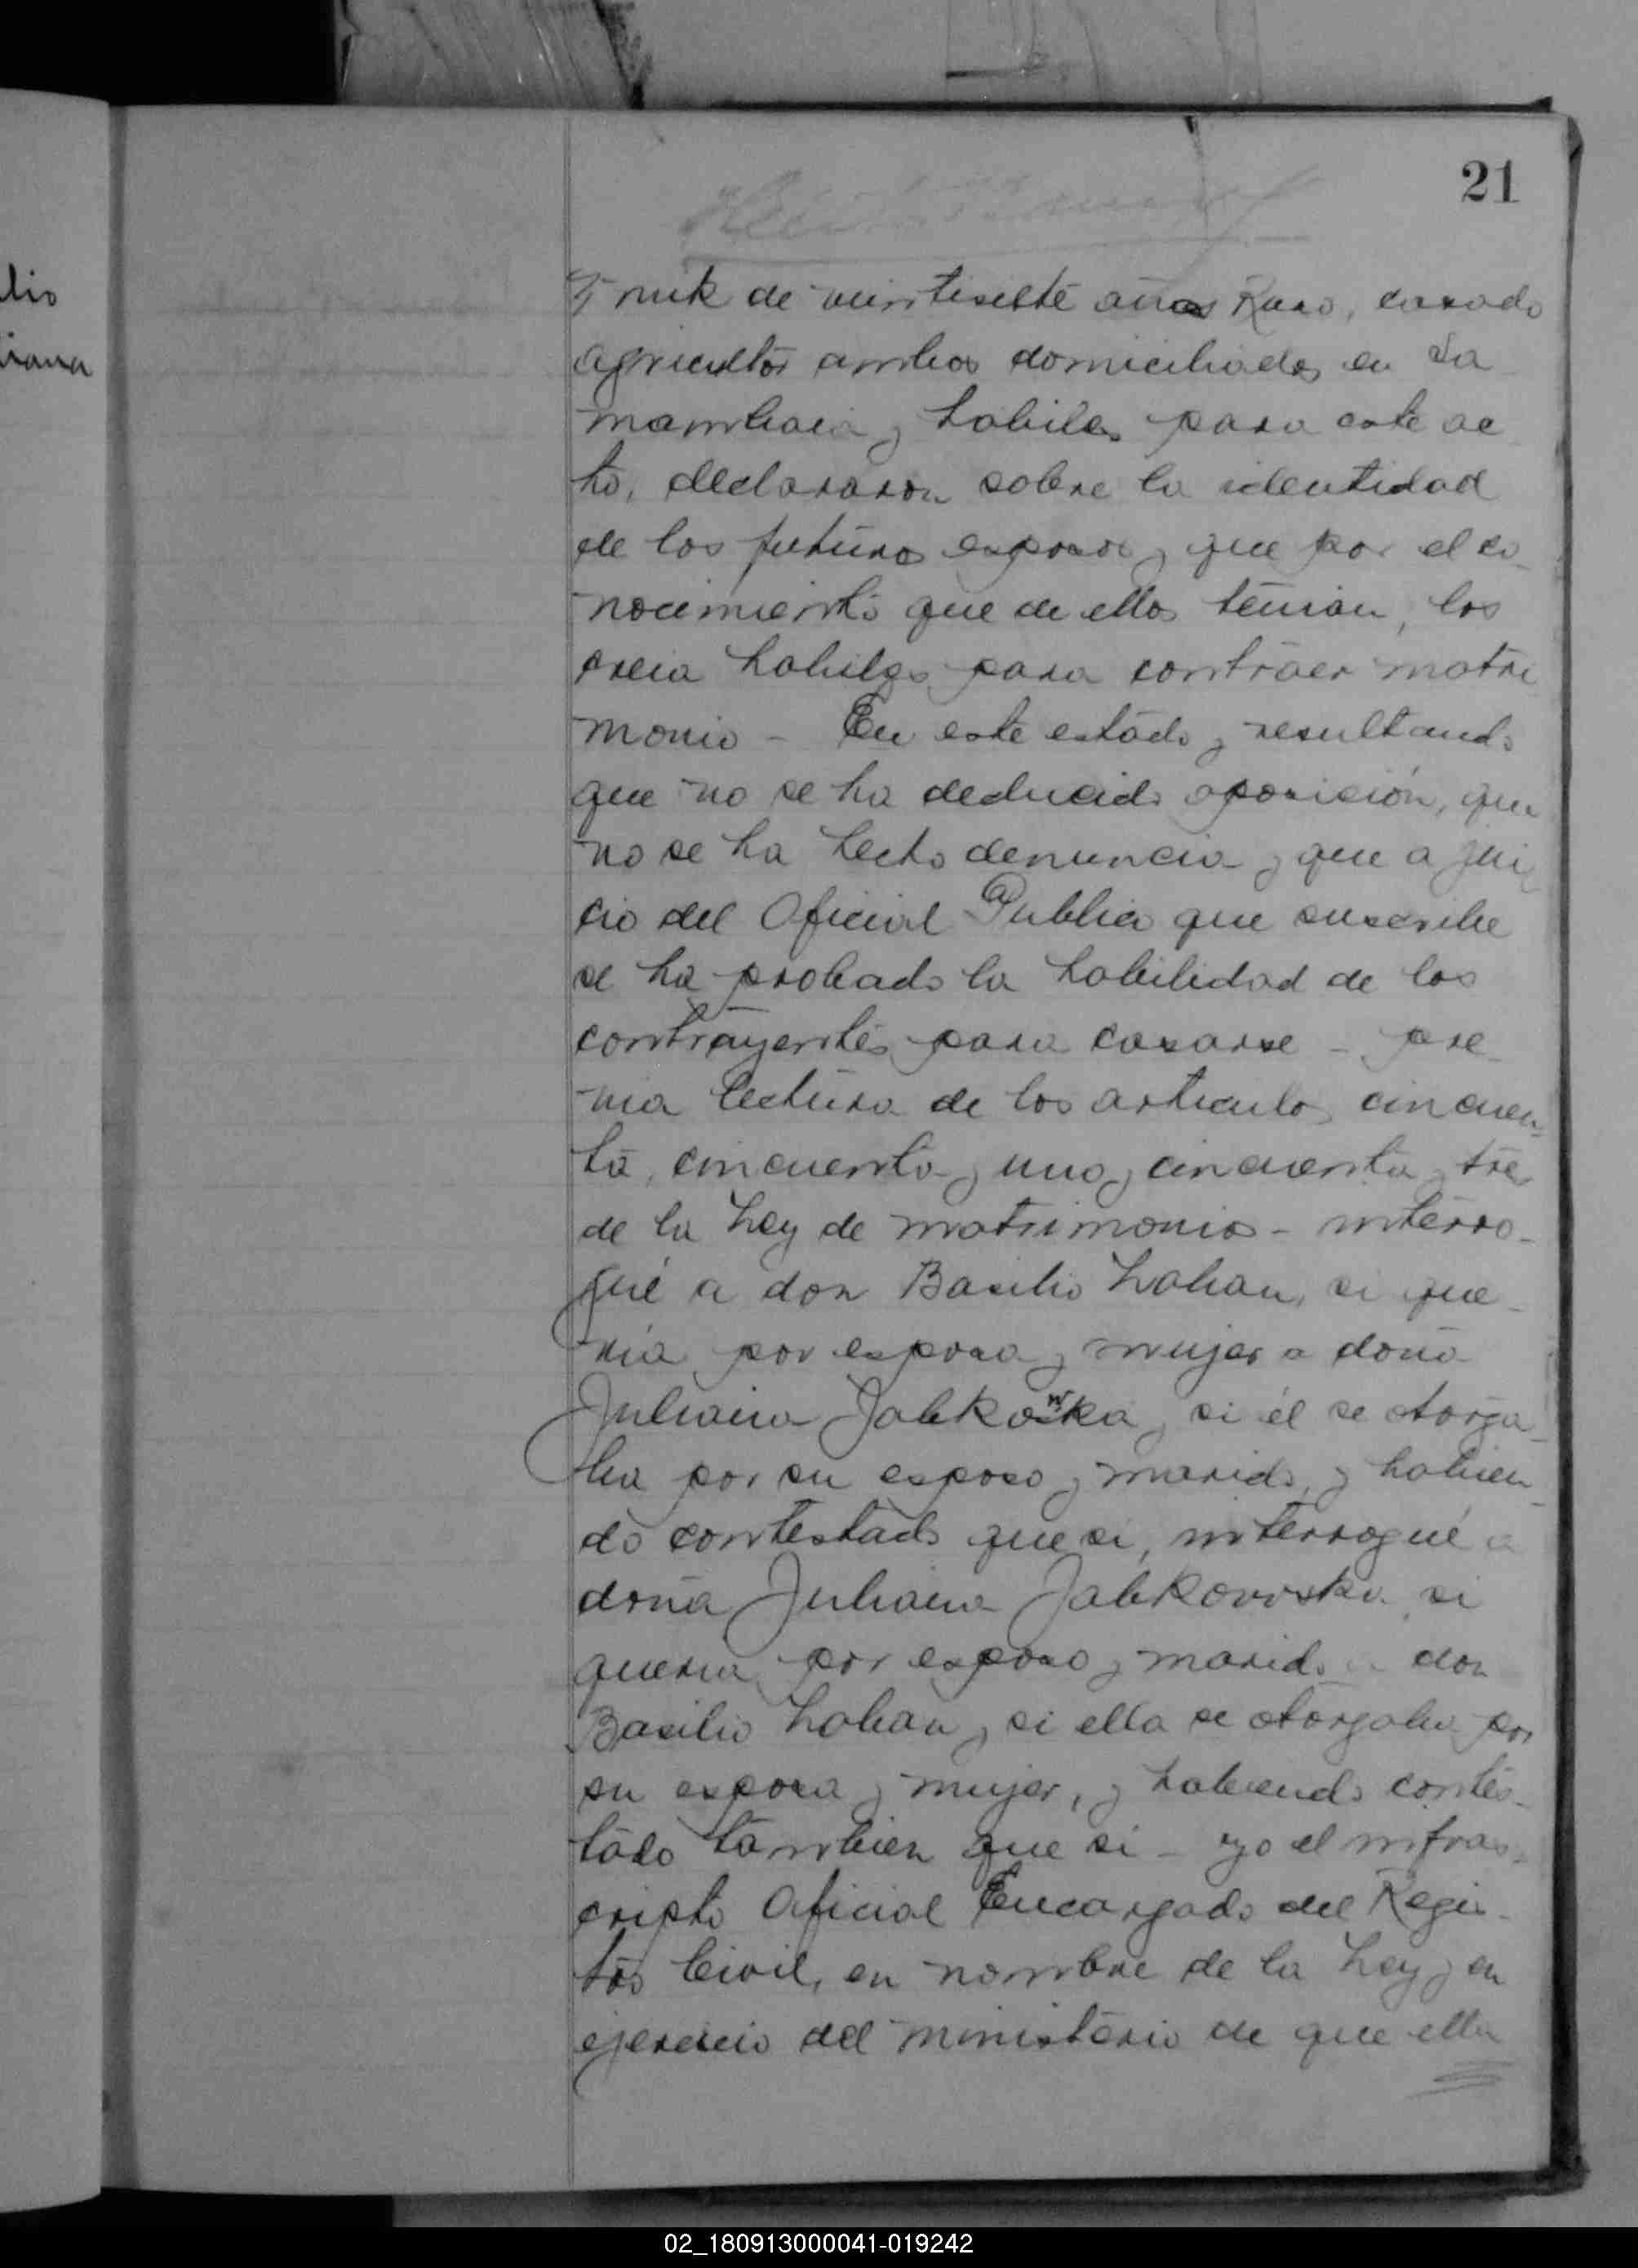 21
lio
iana
de veintisiete años Ruso, casado
agricultor ambos domiciliados en La
mambaia y habiles para este ac
to, declararon sobre la identidad
de los futuros esposos y que por el co-
nocimiento que de ellos tenian, los
creia habiles para contraer matri
monio - En este estado y resultando
que no se ha deducido oposición, que
no se ha hecho denuncia y que a jui
cio del Oficial Publico que suscribe
se ha probado la habilidad de los
contrayentes para casarse - pre-
via lectura de los articulos cincuen-
ta, cincuenta y uno y cincuenta y tres
de la Ley de matrimonio - interro-
gué a don Basilio Loban, si que-
ria por esposa y mujer a doña
Juliana Jabkowska y si él se otorga-
ba por su esposo y marido, y habien-
do contestado que si, interrogué a
doña Juliana Jabkowska si
queria por esposo y marido a don
Basilio Loban y si ella se otorgaba por
su esposa y mujer, y habiendo contes-
tado tambien que si - yo el infras-
cripto Oficial Encargado del Regis-
tro Civil, en nombre de la Ley y en
ejercicio del ministerio de que ella
02_180913000041-019242